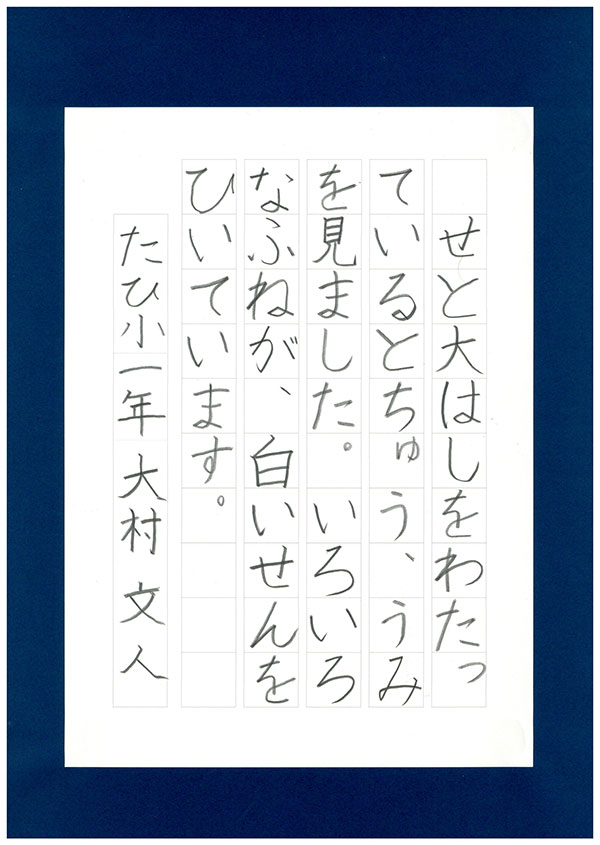 せと大はしをわたっ
ているとちゅう、うみ
を見ました。いろいろ
なふねが、白いせんを
ひいています。
たひ小一年 大村 文人